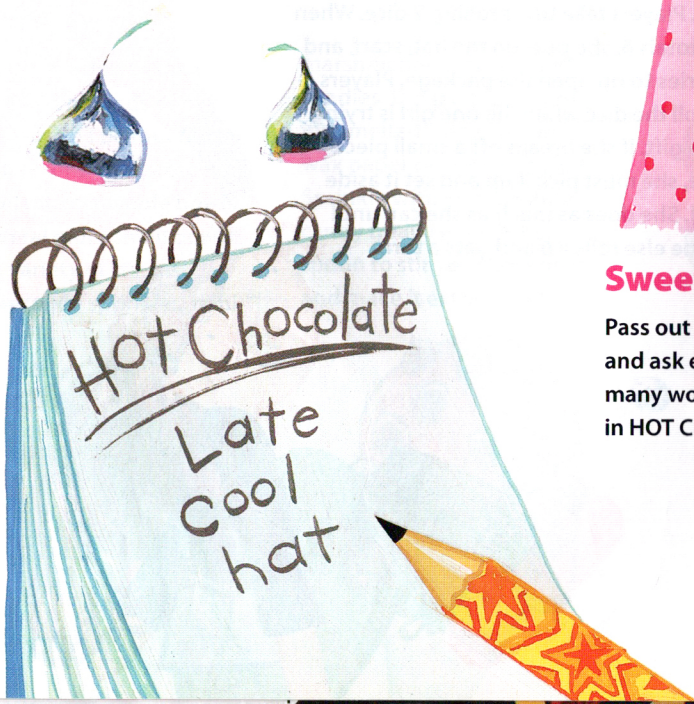 Hot Chocolate
Late
cool
hat
Swee
Pass out
and ask e
many wo
in HOT C